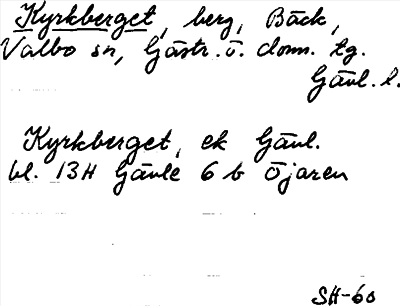 Kyrkberget, berg, Bäck,
Valbo sn, Gästr. ö. dom. tg.
Gävl. l.
Kyrkberget, ek Gävl.
bl. 13H Gävle 6 b Öjaren
SH-60